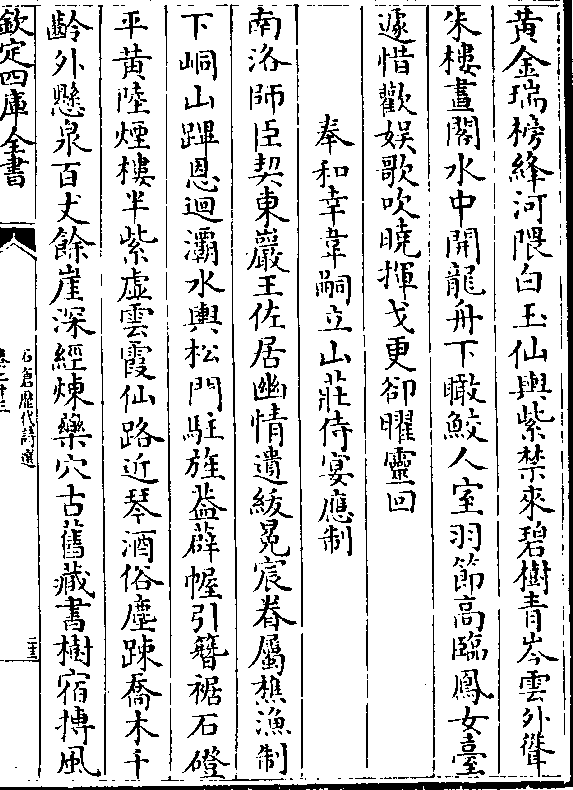 黄金瑞榜絳河隈白玉仙輿紫禁來碧樹青岑雲外聳
朱樓畫閣水中開龍舟下瞰鮫人室羽節高臨鳳女臺
遽惜歡娯歌吹曉揮戈更卻曜靈回
奉和幸韋嗣立山莊侍宴應制
南洛師臣契東巖王佐居幽情遺紱冕宸眷屬樵漁制
下峒山蹕恩迴灞水輿松門駐旌葢薜幄引簪裾石磴
平黄陸煙樓半紫虚雲霞仙路近琴酒俗塵踈喬木千
齡外懸泉百丈餘崖深經煉藥穴古舊藏書樹宿摶風
欽定四庫全書
石倉歴代詩選
卷二十三